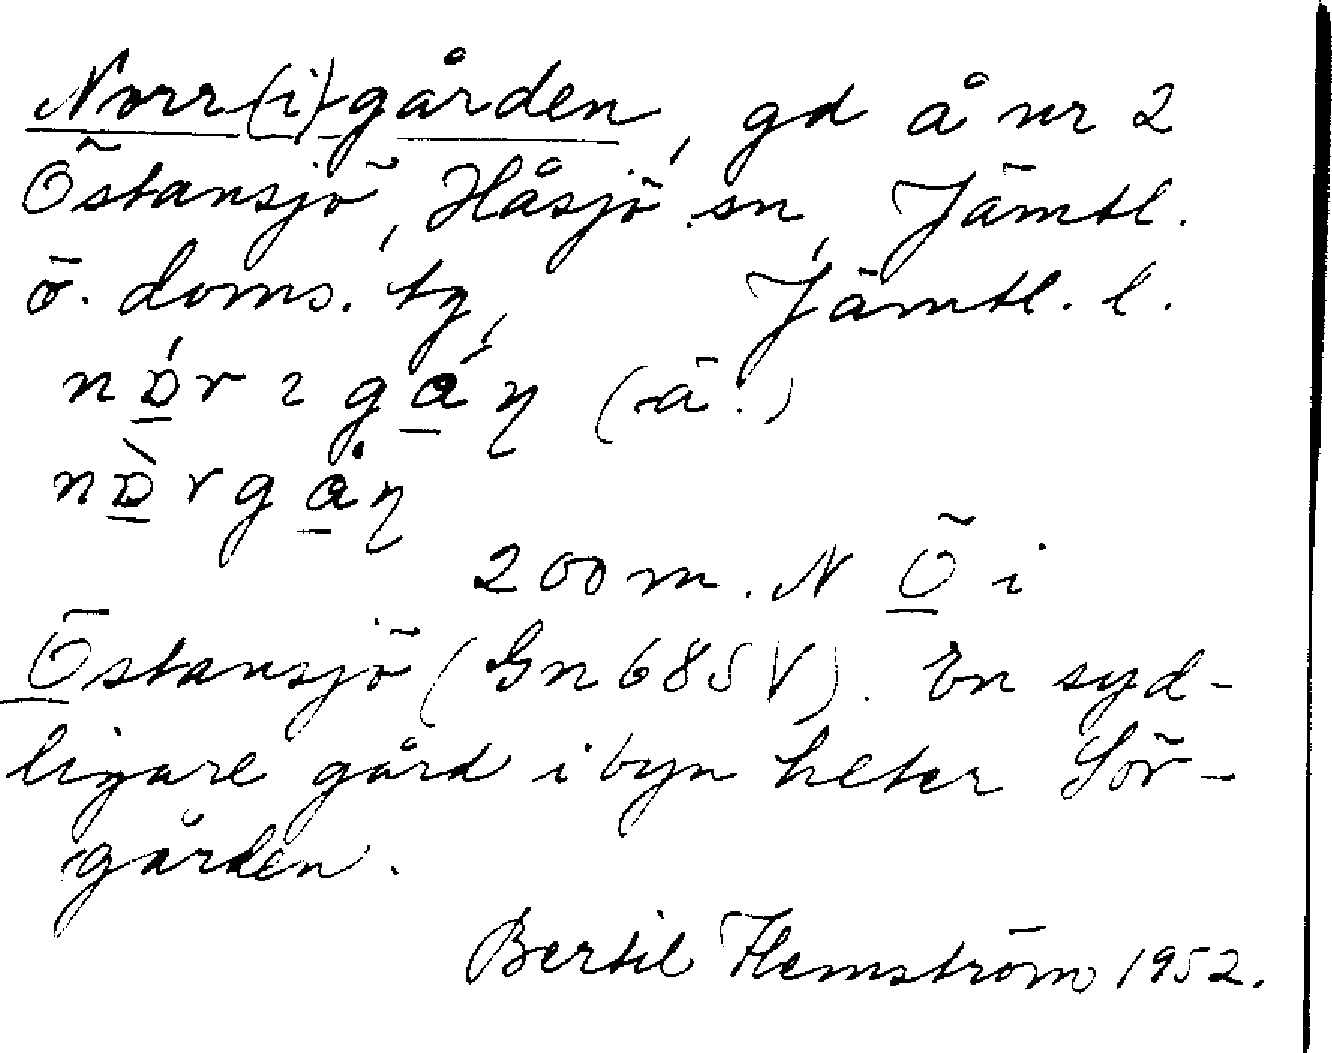 Norr(i)gården, gd å nr 2
Östansjö, Håsjö sn, Jämtl.
ö. doms. tg, Jämtl. l.
200 m. N Ö i
Östansjö (Gn 685 V). En syd-
ligare gård i byn heter Sör-
gården.
Bertil Flemström 1952.